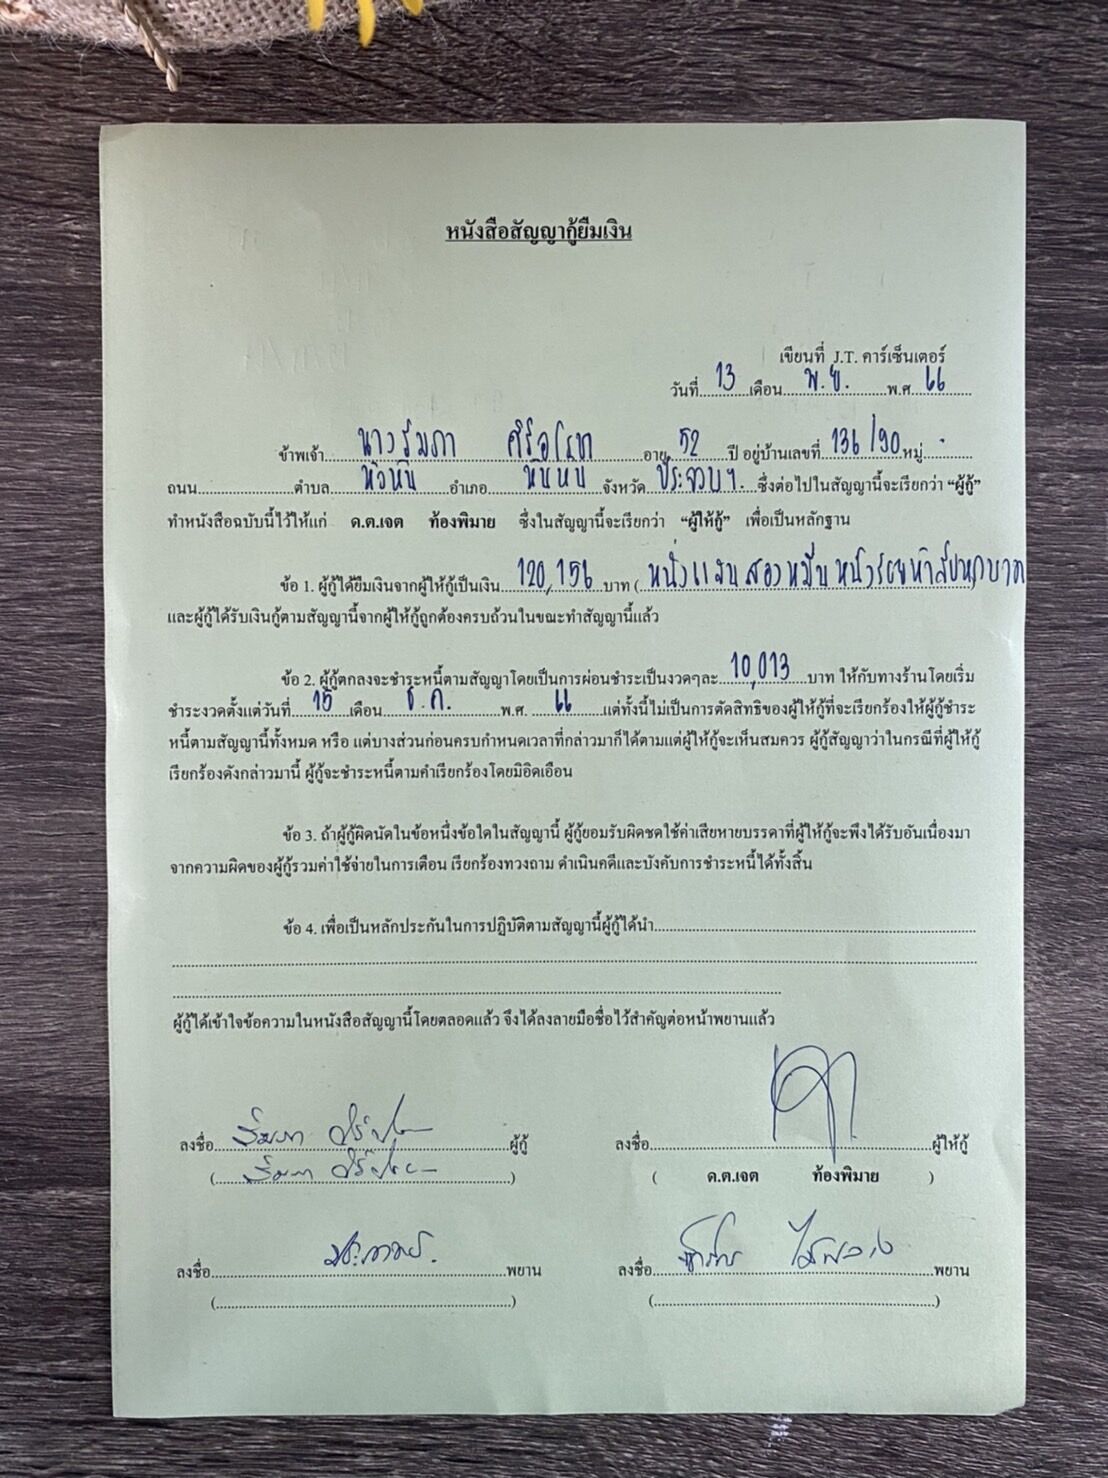 หนังสือสัญญากู้ยืมเงิน
เขียนที่ J.T. คาร์เซ็นเตอร์
วันที่ 13 เดือน พ.ย. พ.ศ. 66
ข้าพเจ้า นางริมภา อายุ 52 ปี อยู่บ้านเลขที่ 136/90 หมู่ -
ถนน ตำบล หัวหิน อำเภอ หัวหิน จังหวัด ประจวบฯ. ซึ่งต่อไปในสัญญานี้จะเรียกว่า “ผู้กู้”
ทำหนังสือฉบับนี้ไว้ให้แก่ ด.ต.เจต ท้องพิมาย ซึ่งในสัญญานี้จะเรียกว่า “ผู้ให้กู้” เพื่อเป็นหลักฐาน
ข้อ 1. ผู้กู้ได้ยืมเงินจากผู้ให้กู้เป็นเงิน 120,156 บาท ( หนึ่งแสนสองหมื่นหนึ่งร้อยห้าสิบหกบาท )
และผู้กู้ได้รับเงินกู้ตามสัญญานี้จากผู้ให้กู้ถูกต้องครบถ้วนในขณะทำสัญญานี้แล้ว
ข้อ 2. ผู้กู้ตกลงจะชำระหนี้ตามสัญญาโดยเป็นการผ่อนชำระเป็นงวดๆละ 10,013 บาท ให้กับทางร้านโดยเริ่ม
ชำระงวดตั้งแต่วันที่ 15 เดือน ธ.ค. พ.ศ. 66 แต่ทั้งนี้ไม่เป็นการตัดสิทธิของผู้ให้กู้ที่จะเรียกร้องให้ผู้กู้ชำระ
หนี้ตามสัญญานี้ทั้งหมด หรือ แต่บางส่วนก่อนครบกำหนดเวลาที่กล่าวมาก็ได้ตามแต่ผู้ให้กู้จะเห็นสมควร ผู้กู้สัญญาว่าในกรณีที่ผู้ให้กู้
เรียกร้องดังกล่าวมานี้ ผู้กู้จะชำระหนี้ตามคำเรียกร้องโดยมิอิดเอือน
ข้อ 3. ถ้าผู้กู้ผิดนัดในข้อหนึ่งข้อใดในสัญญานี้ ผู้กู้ยอมรับผิดชดใช้ค่าเสียหายบรรดาที่ผู้ให้กู้จะพึงได้รับอันเนื่องมา
จากความผิดของผู้กู้รวมค่าใช้จ่ายในการเตือน เรียกร้องทวงถาม ดำเนินคดีและบังคับการชำระหนี้ได้ทั้งสิ้น
ข้อ 4. เพื่อเป็นหลักประกันในการปฏิบัติตามสัญญานี้ผู้กู้ได้นำ
ผู้กู้ได้เข้าใจข้อความในหนังสือสัญญานี้โดยตลอดแล้ว จึงได้ลงลายมือชื่อไว้สำคัญต่อหน้าพยานแล้ว
ลงชื่อ ริมภา ผู้กู้ ลงชื่อ ผู้ให้กู้
( ริมภา ) ( ด.ต.เจต ท้องพิมาย )
ลงชื่อ พยาน ลงชื่อ พยาน